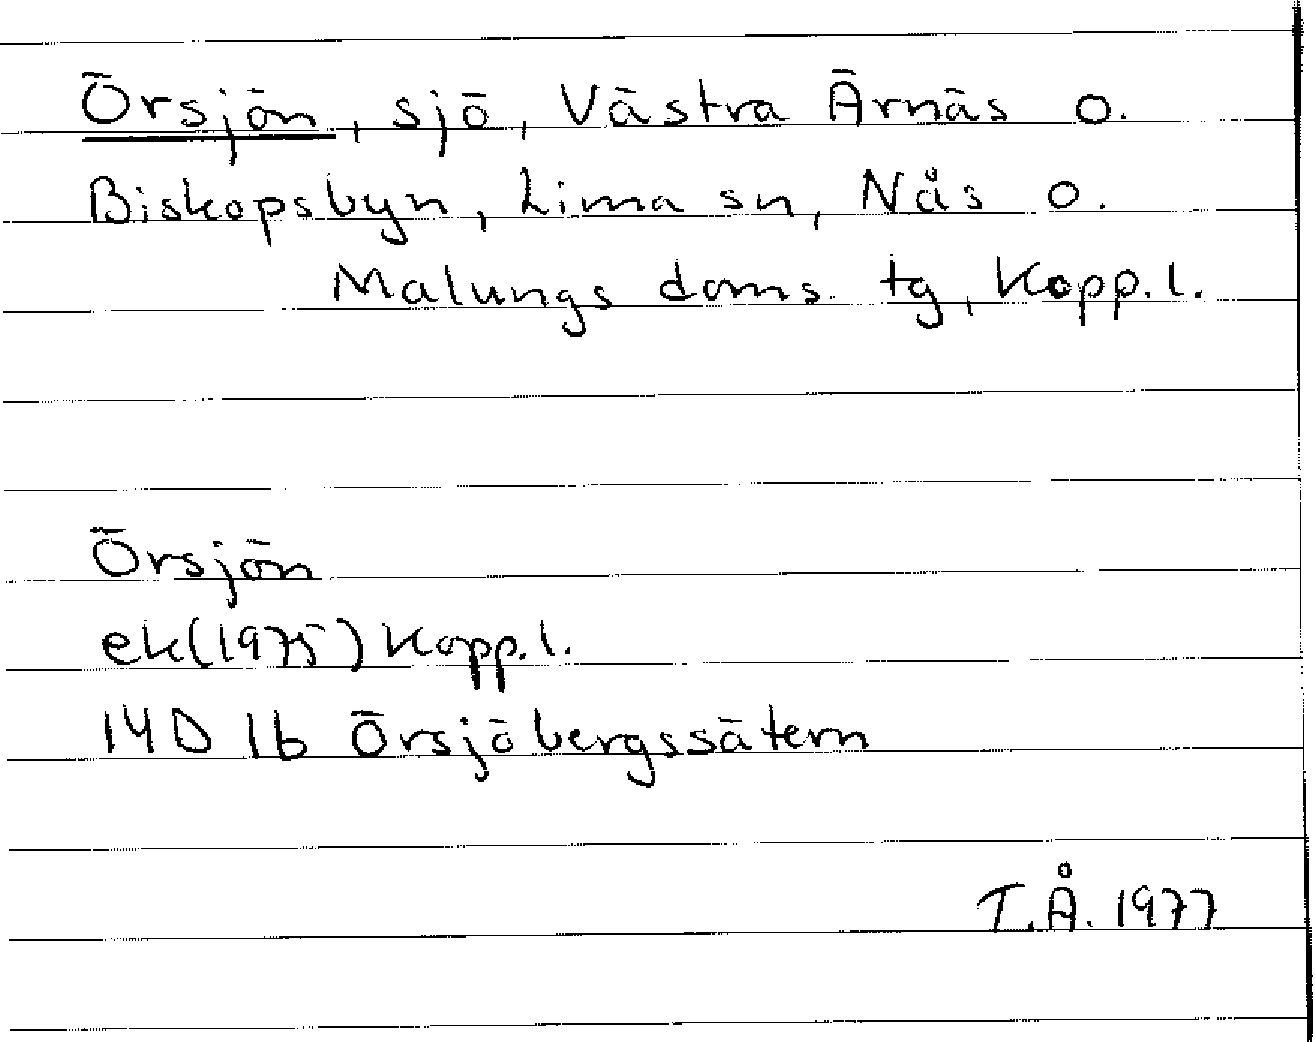 Örsjön, sjö, Västra Ärnäs o.
Biskopsbyn, Lima sn, Nås o.
Malungs doms. tg, Kopp.l.
Örsjön
ek(1975) Kopp.l.
14D 1b Örsjöbergssätern
T.Å. 1977